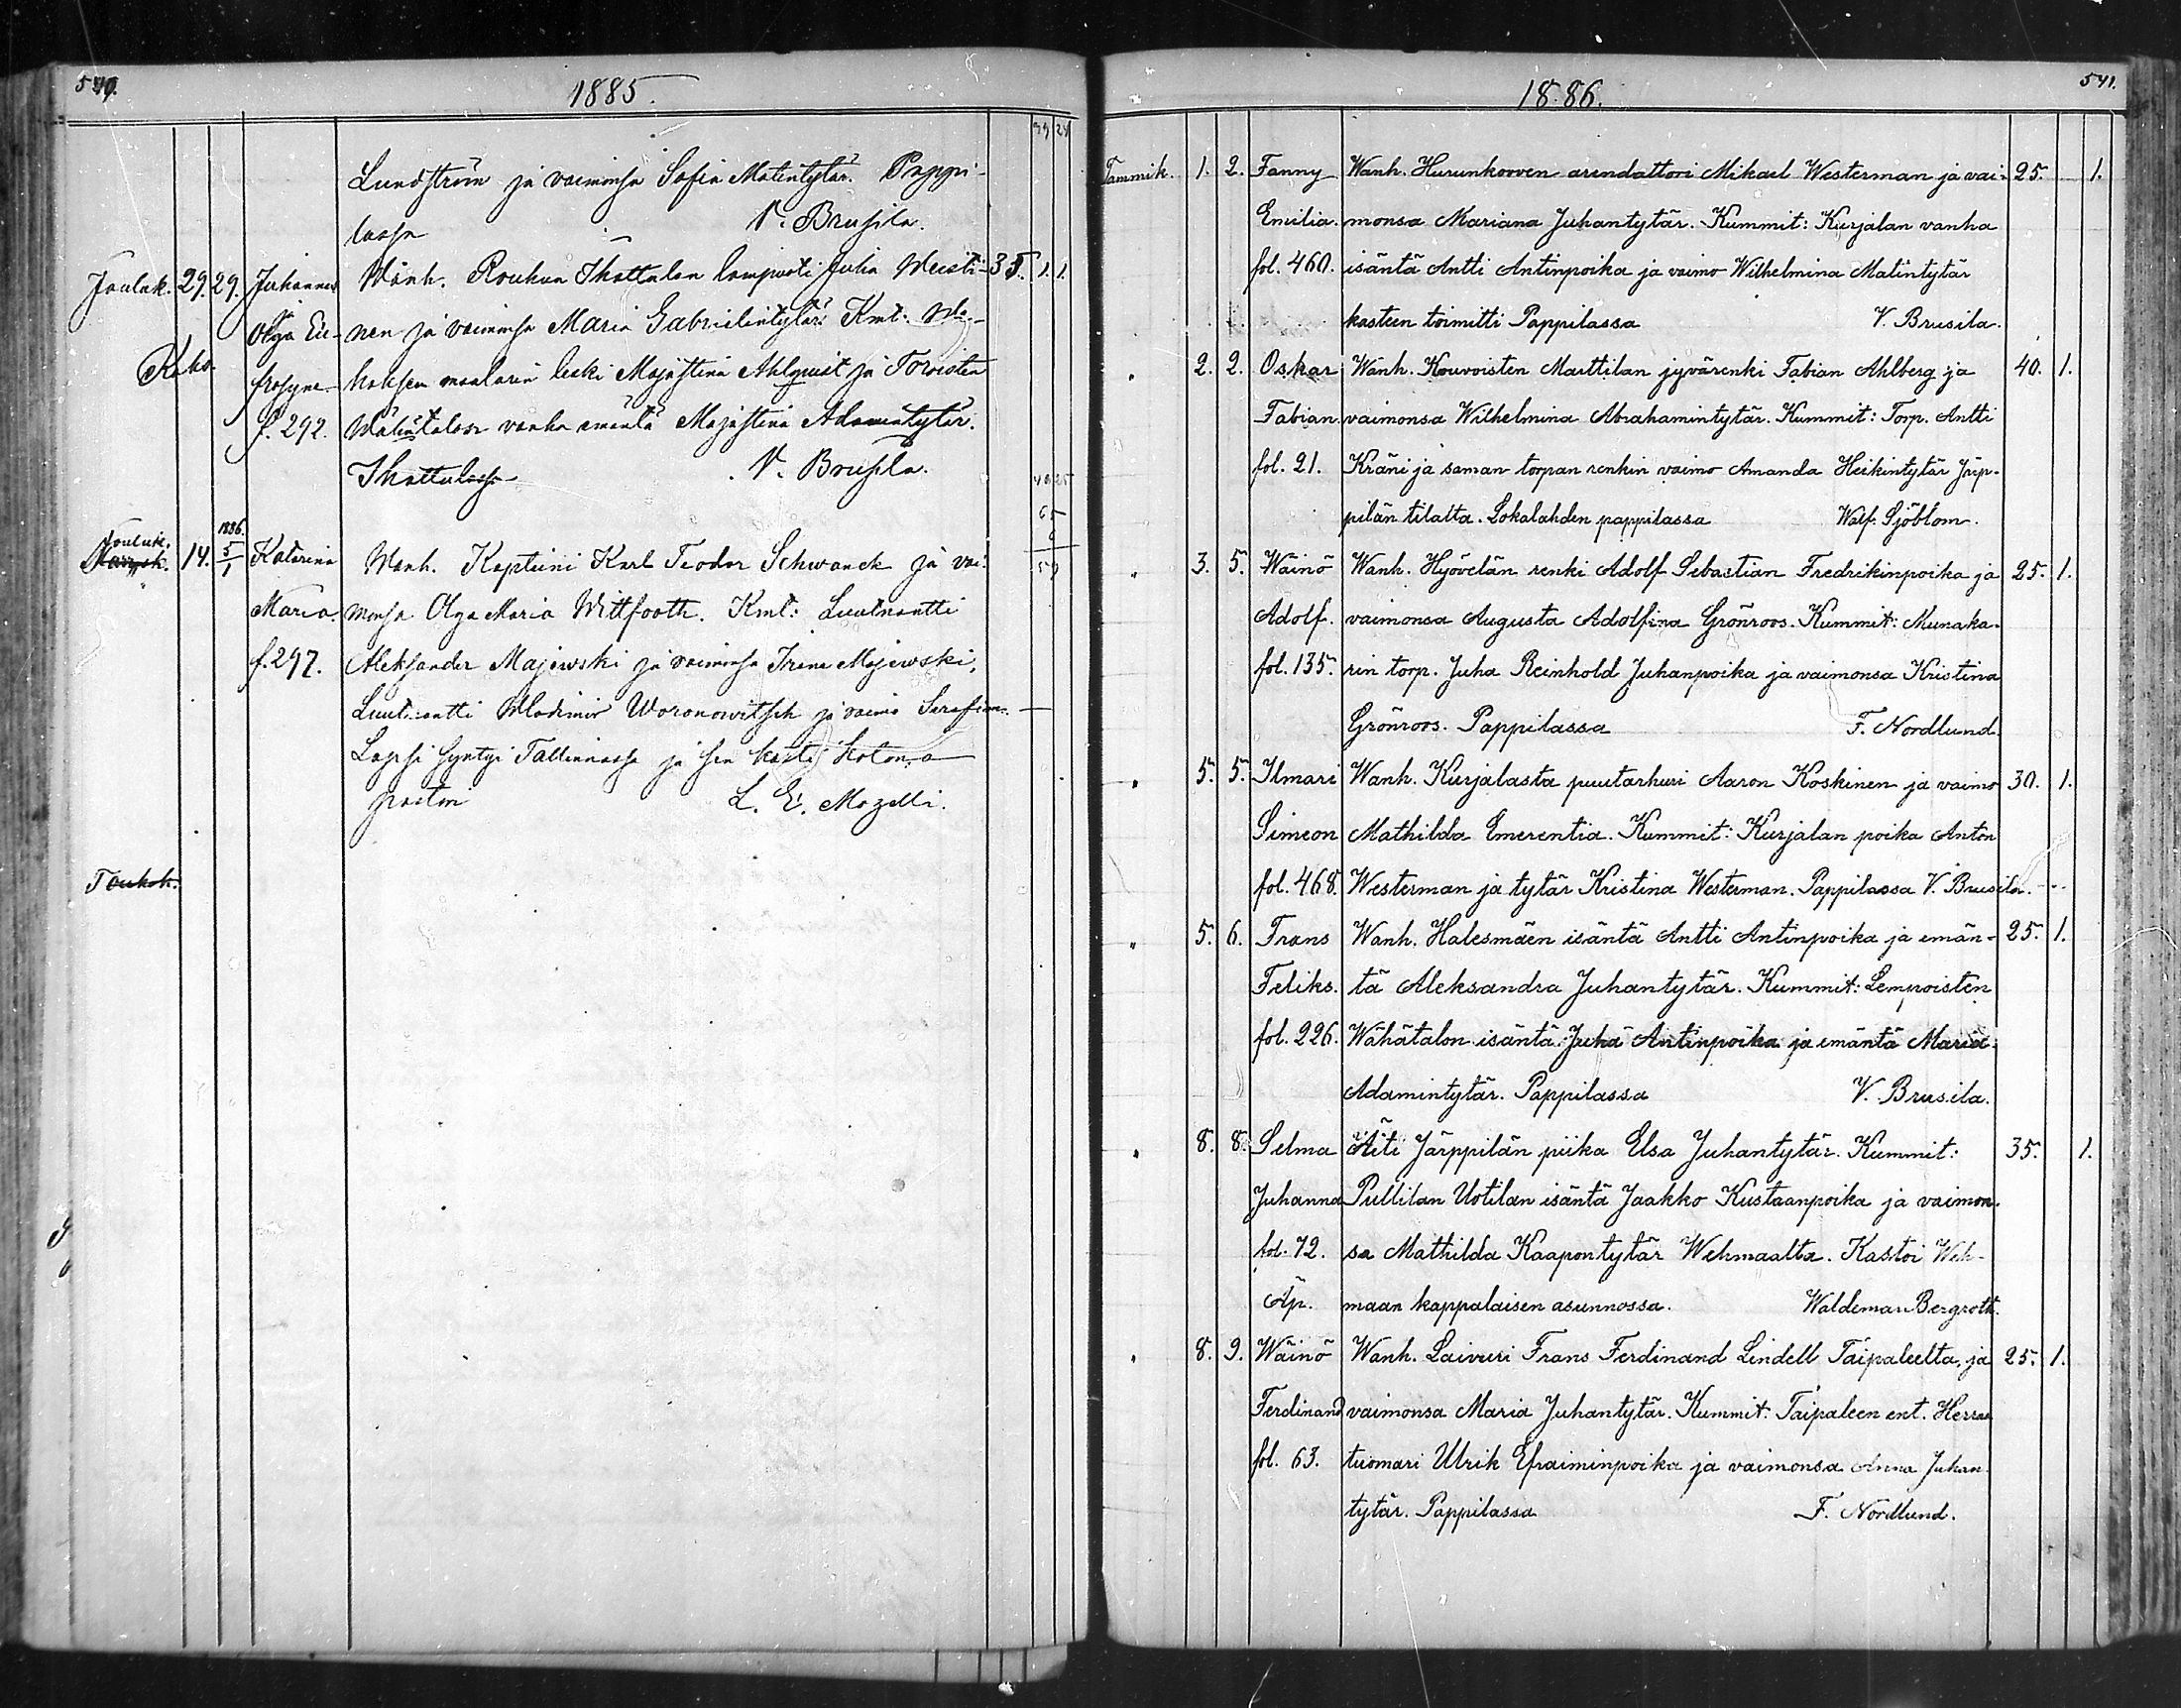 540.
1885.
39 24
Lundström ja vaimonsa Sofia Matintytär. Pappi-
lassa V. Brusila.
Jouluk. 29. 29. Juhannes Wanh. Roukun Ikattulan lampuoti Juha Meisti- 35. 1. 1.
ja Olga Eu- nen ja vaimonsa Maria Gabrielintytär. Kmt:
Kaks. frosyne hoksen maalarin leski Majastina Ahlqvist ja Torvisten
f. 292. Wähätalon vanha emäntä Majastina Adamintytär.
Ikattulassa V. Brusila.
40 25
65
6
59
1886.
Jouluk. 14. 5/1 Katarina Wanh. Kapteini Karl Teodor Schwanck ja vai-
Maria. monsa Olga Maria Wittfooth. Kmt: Luutnantti
f. 297. Aleksander Majewski ja vaimonsa Irene Majewski,
Luutnantti Wladimir Woronowitsch ja vaimo Serafine.
Lapsi syntyi Tallinnassa ja sen kasti kotona
pastori L. E. Mozelli.
Toukok.
1886.
541.
Tammik. 1. 2. Fanny Wanh. Hurunkorven arendattori Mikael Westerman ja vai- 25. 1.
Emilia. monsa Mariana Juhantytär. Kummit: Kurjalan vanha
fol. 460. isäntä Antti Antinpoika ja vaimo Wilhelmina Matintytär
kasteen toimitti Pappilassa V. Brusila.
" 2. 2. Oskar Wanh. Kouvoisten Marttilan jyvärenki Fabian Ahlberg ja 40. 1.
Fabian vaimonsa Wilhelmina Abrahamintytär. Kummit: Torp. Antti
fol. 21. Kräni ja saman torpan renkin vaimo Amanda Heikintytär Järp-
pilän tilalta. Lokalahden pappilassa Walf. Sjöblom.
" 3. 5. Wäinö Wanh. Hyövelän renki Adolf Sebastian Fredrikinpoika ja 25. 1.
Adolf. vaimonsa Augusta Adolfina Grönroos. Kummit: Munaka-
fol. 135. rin torp. Juha Reinhold Juhanpoika ja vaimonsa Kristina
Grönroos. Pappilassa F. Nordlund.
" 5. 5. Ilmari Wanh. Kurjalasta puutarhuri Aaron Koskinen ja vaimo 30. 1.
Simeon Mathilda Emerentia. Kummit: Kurjalan poika Anton
fol. 468. Westerman ja tytär Kristina Westerman. Pappilassa V. Brusila.
" 5. 6. Frans Wanh. Halesmäen isäntä Antti Antinpoika ja emän- 25. 1.
Feliks. tä Aleksandra Juhantytär. Kummit: Lempoisten
fol. 226. Wähätalon isäntä Juha Antinpoika ja emäntä Maria
Adamintytär. Pappilassa V. Brusila.
" 8. 8. Selma Äiti Järppilän piika Elsa Juhantytär. Kummit: 35. 1.
Juhanna Pullilan Uotilan isäntä Jaakko Kustaanpoika ja vaimon-
fol. 72. sa Mathilda Kaapontytär Wehmaalta. Kastoi Weh-
Äp. maan kappalaisen asunnossa. Waldemar Bergroth.
" 8. 9. Wäinö Wanh. Laivuri Frans Ferdinand Lindell Taipaleelta, ja 25. 1.
Ferdinand vaimonsa Maria Juhantytär. Kummit: Taipaleen ent. Herras
fol. 63. tuomari Ulrik Efraiminpoika ja vaimonsa Anna Juhan-
tytär. Pappilassa F. Nordlund.